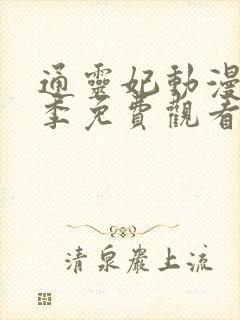 通靈妃動漫
季免費觀看
清泉巖上流